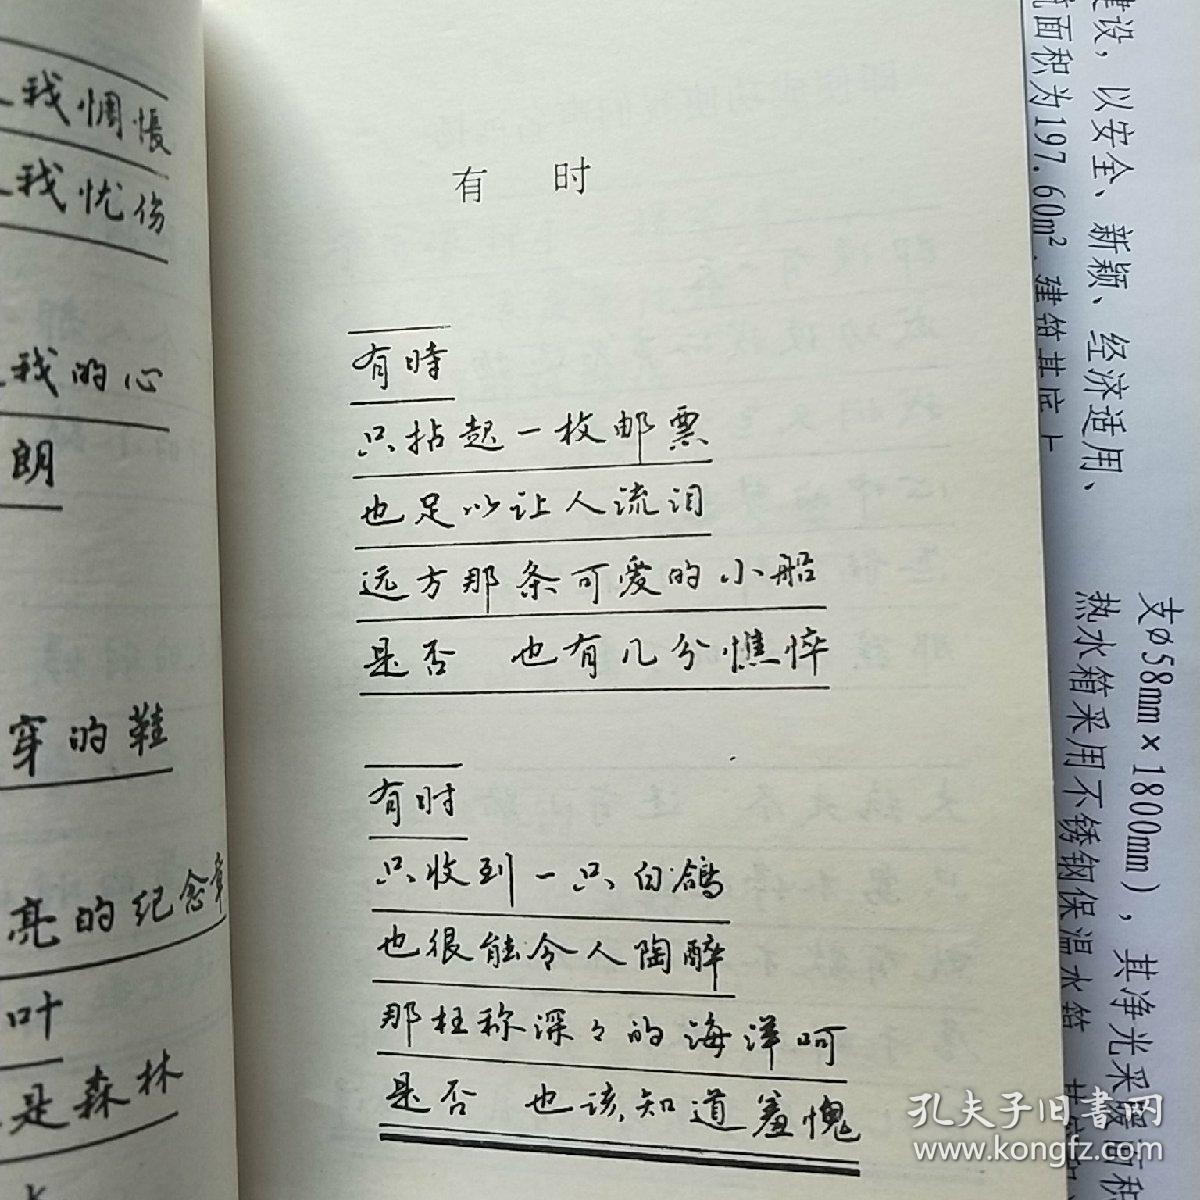 我惆怅
我忧伤
我的心
朗
穿的鞋
亮的纪念章
叶
是森林
有 时
有時
只拈起一枚邮票
也足以让人流泪
远方那条可爱的小船
是否 也有几分憔悴
有时
只收到一只白鸽
也很能令人陶醉
那枉称深々的海洋呵
是否 也该知道羞愧
建设，以安全、新颖、经济适用、
面积为197.60m²，建筑基底上
支φ58mm×1800mm)，其净光采
热水箱采用不锈钢保温水箱
孔夫子旧书网
www.kongfz.com